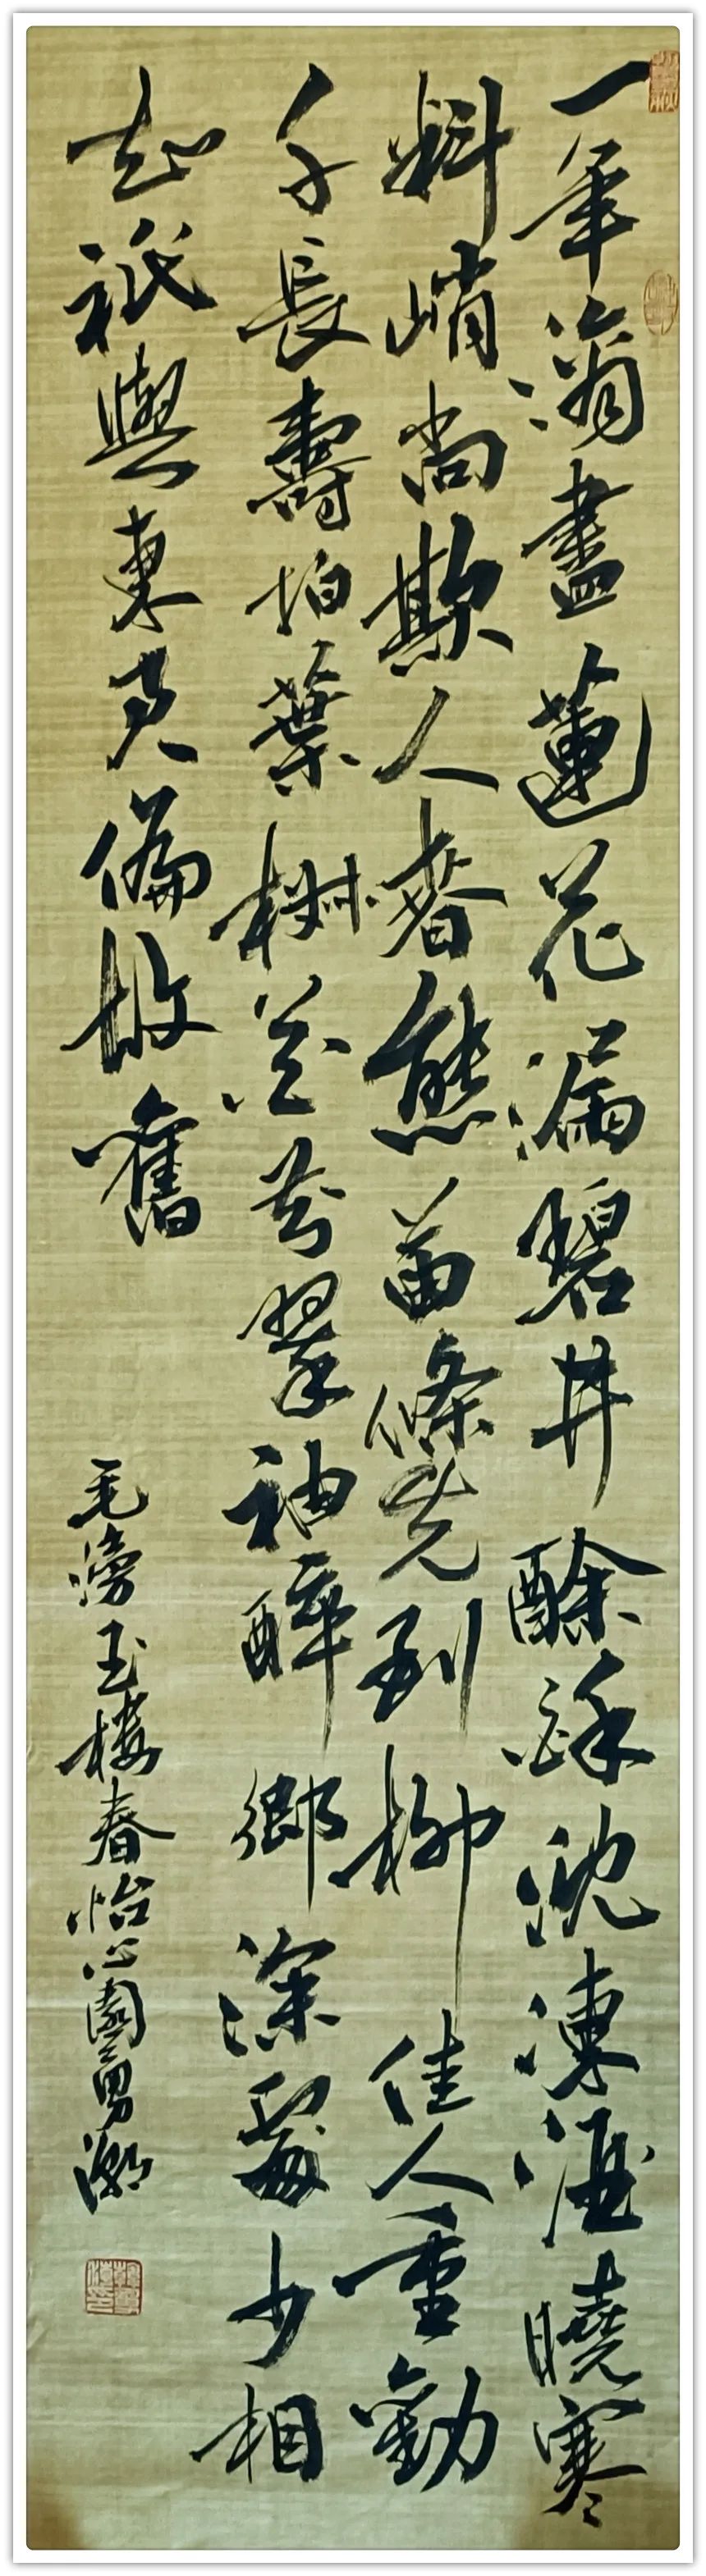 一年滴盡蓮花漏碧井酴酥沈凍酒曉寒
料峭尚欺人春態苗條先到柳佳人重勸
千長壽柏葉椒花芬翠袖醉鄉深處少相
知祇與東君偏故舊
毛滂玉樓春怡心園